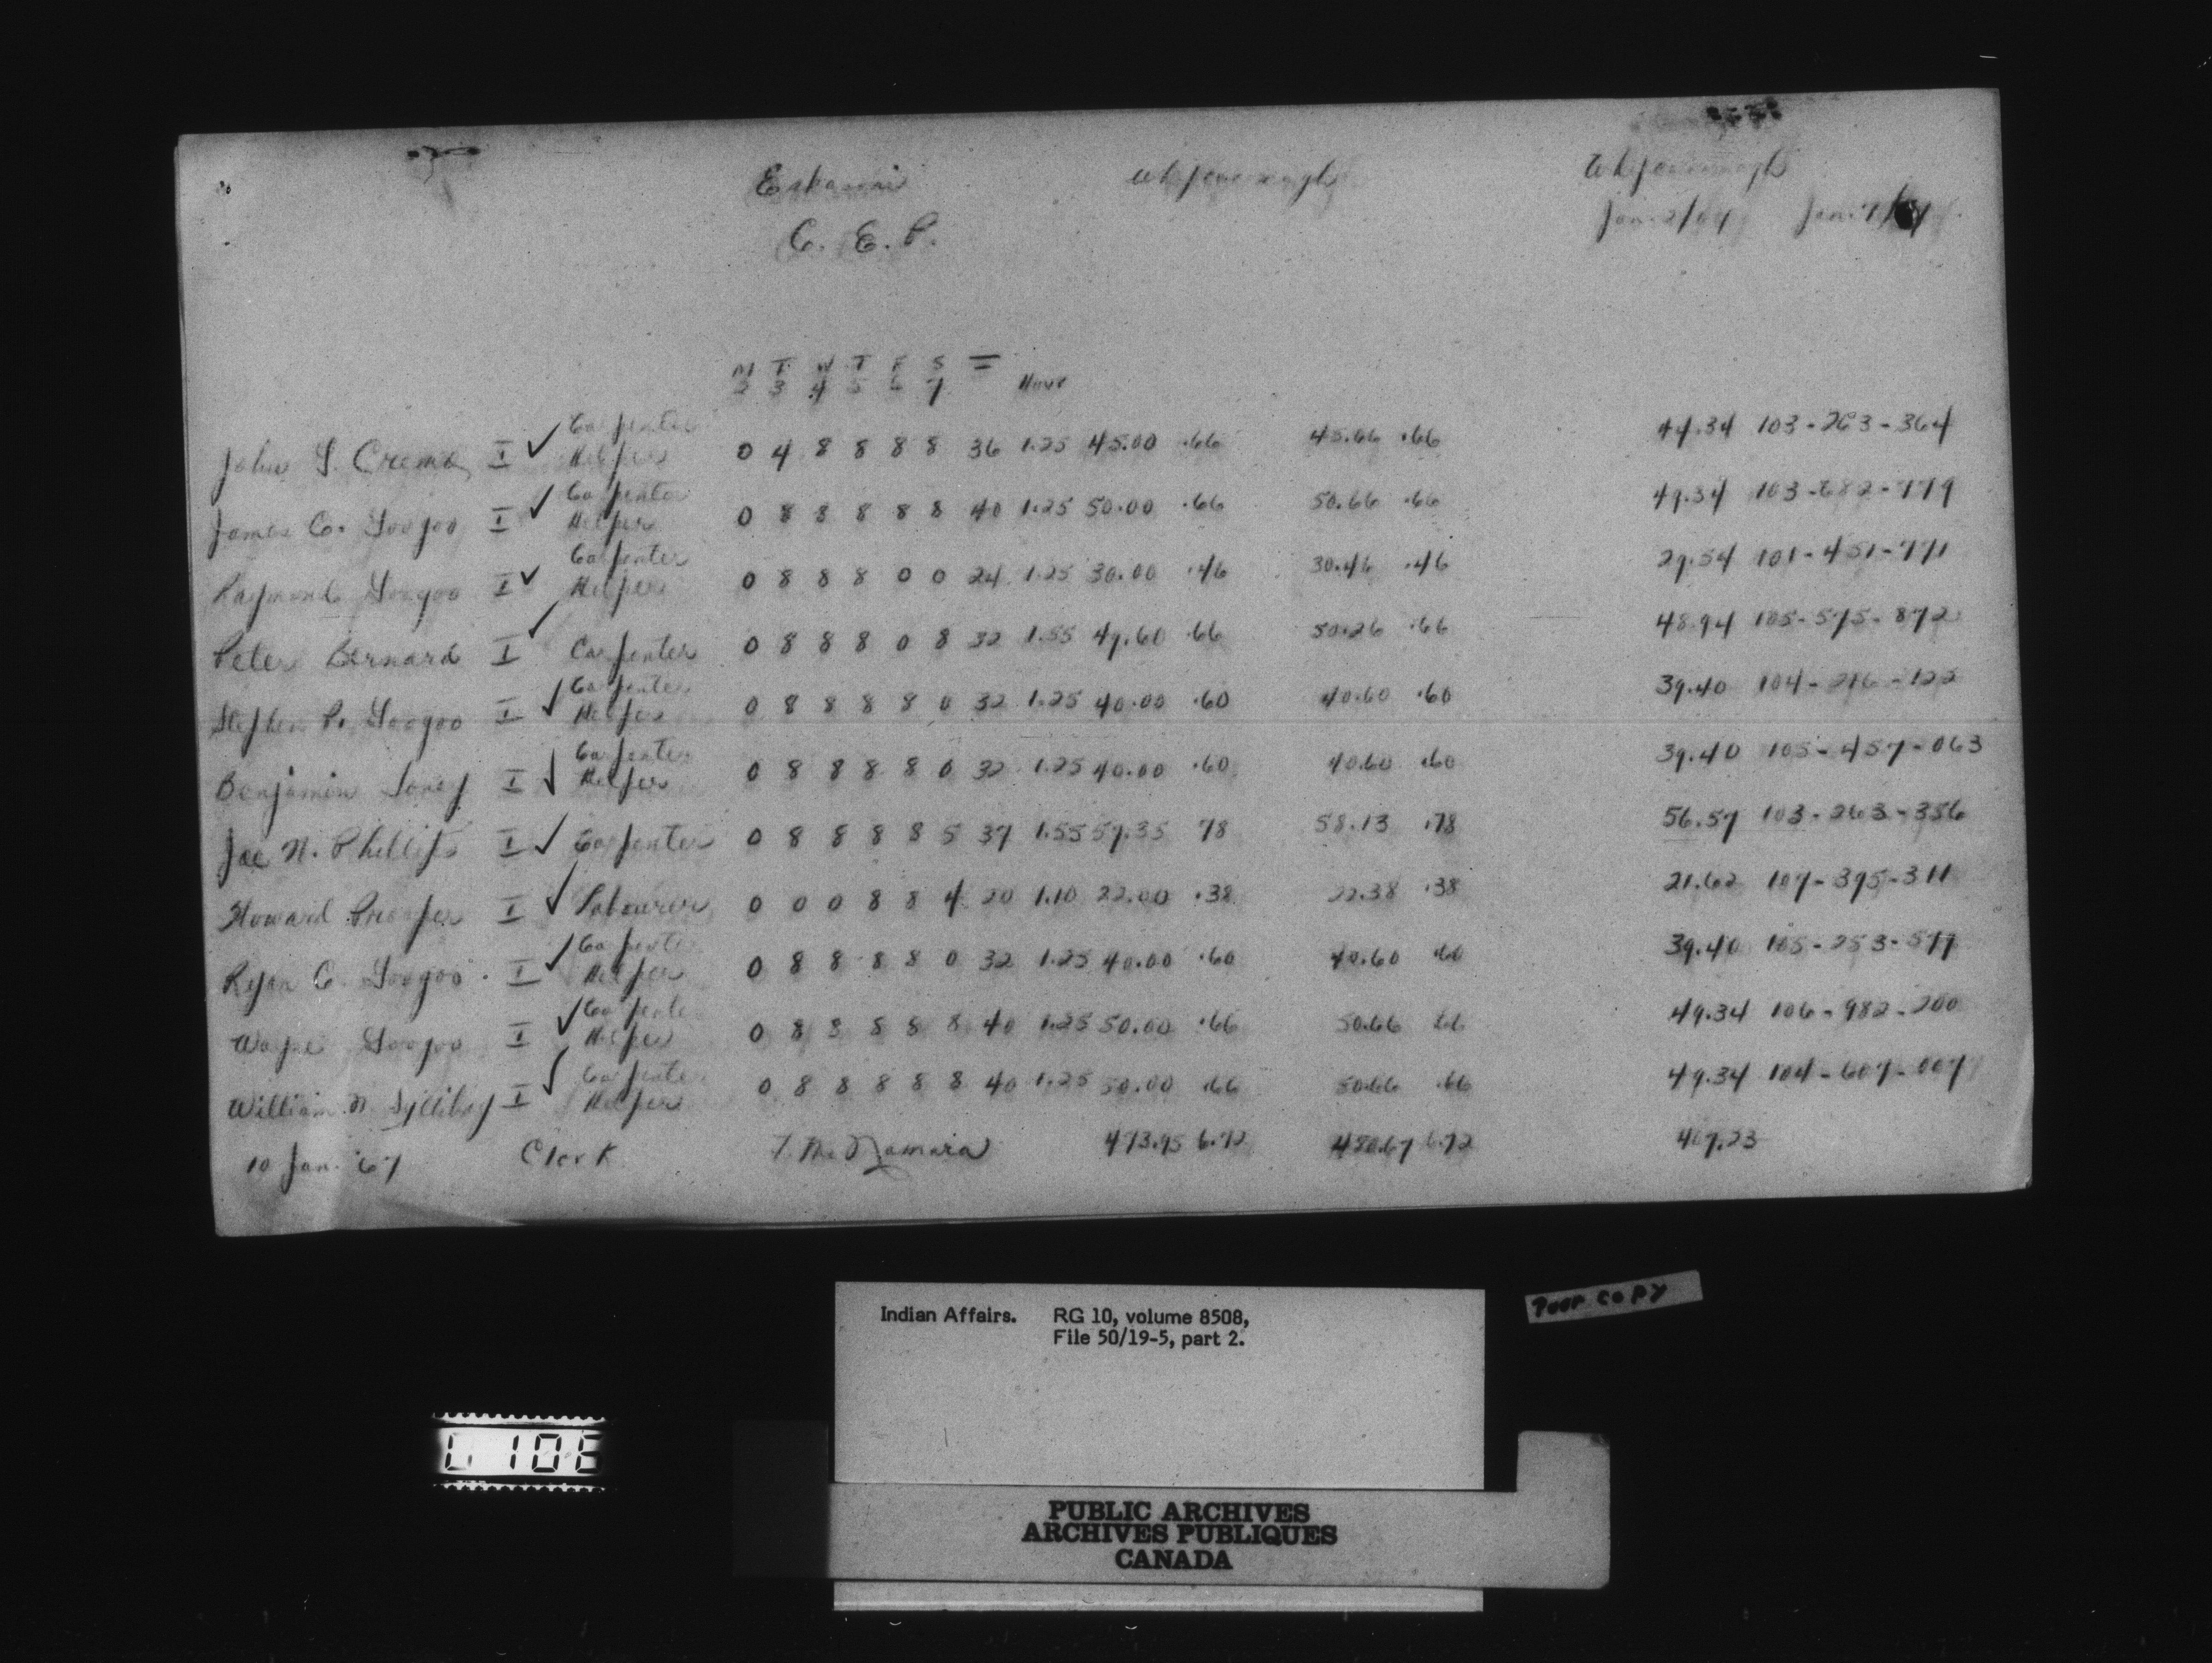 Eskasoni Whycocomagh Whycocomagh
C. E. P. Jan. 2/67 Jan. 7/67
M T W T F S =
2 3 4 5 6 7 Hour
Carpenter
John S. Cremo I ✓ Helper 0 4 8 8 8 8 36 1.25 45.00 .66 45.66 .66 44.34 103-263-364
Carpenter
James C. Googoo I ✓ Helper 0 8 8 8 8 8 40 1.25 50.00 .66 50.66 .66 49.34 103-682-779
Carpenter
Raymond Googoo I ✓ Helper 0 8 8 8 0 0 24 1.25 30.00 .46 30.46 .46 29.54 101-451-771
Peter Bernard I ✓ Carpenter 0 8 8 8 0 8 32 1.55 49.60 .66 50.26 .66 48.94 105-575-872
Carpenter
Stephen P. Googoo I ✓ Helper 0 8 8 8 8 0 32 1.25 40.00 .60 40.60 .60 39.40 104-216-122
Carpenter
Benjamin Loney I ✓ Helper 0 8 8 8 8 0 32 1.25 40.00 .60 40.60 .60 39.40 105-457-063
Joe N. Phillips I ✓ Carpenter 0 8 8 8 8 5 37 1.55 57.35 78 58.13 .78 56.57 103-263-356
Howard Prosper I ✓ Labourer 0 0 0 8 8 4 20 1.10 22.00 .38 22.38 .38 21.62 107-395-311
Carpenter
Ryan C. Googoo I ✓ Helper 0 8 8 8 8 0 32 1.25 40.00 .60 40.60 .60 39.40 105-253-577
Carpenter
Wayne Googoo I ✓ Helper 0 8 8 8 8 8 40 1.25 50.00 .66 50.66 .66 49.34 106-982-200
Carpenter
William N Sylliboy I ✓ Helper 0 8 8 8 8 8 40 1.25 50.00 .66 50.66 .66 49.34 104-607-007
10 Jan. '67 Clerk T. McNamara 473.95 6.72 480.67 6.72 467.23
Poor copy
Indian Affairs. RG 10, volume 8508,
File 50/19-5, part 2.
PUBLIC ARCHIVES
ARCHIVES PUBLIQUES
CANADA